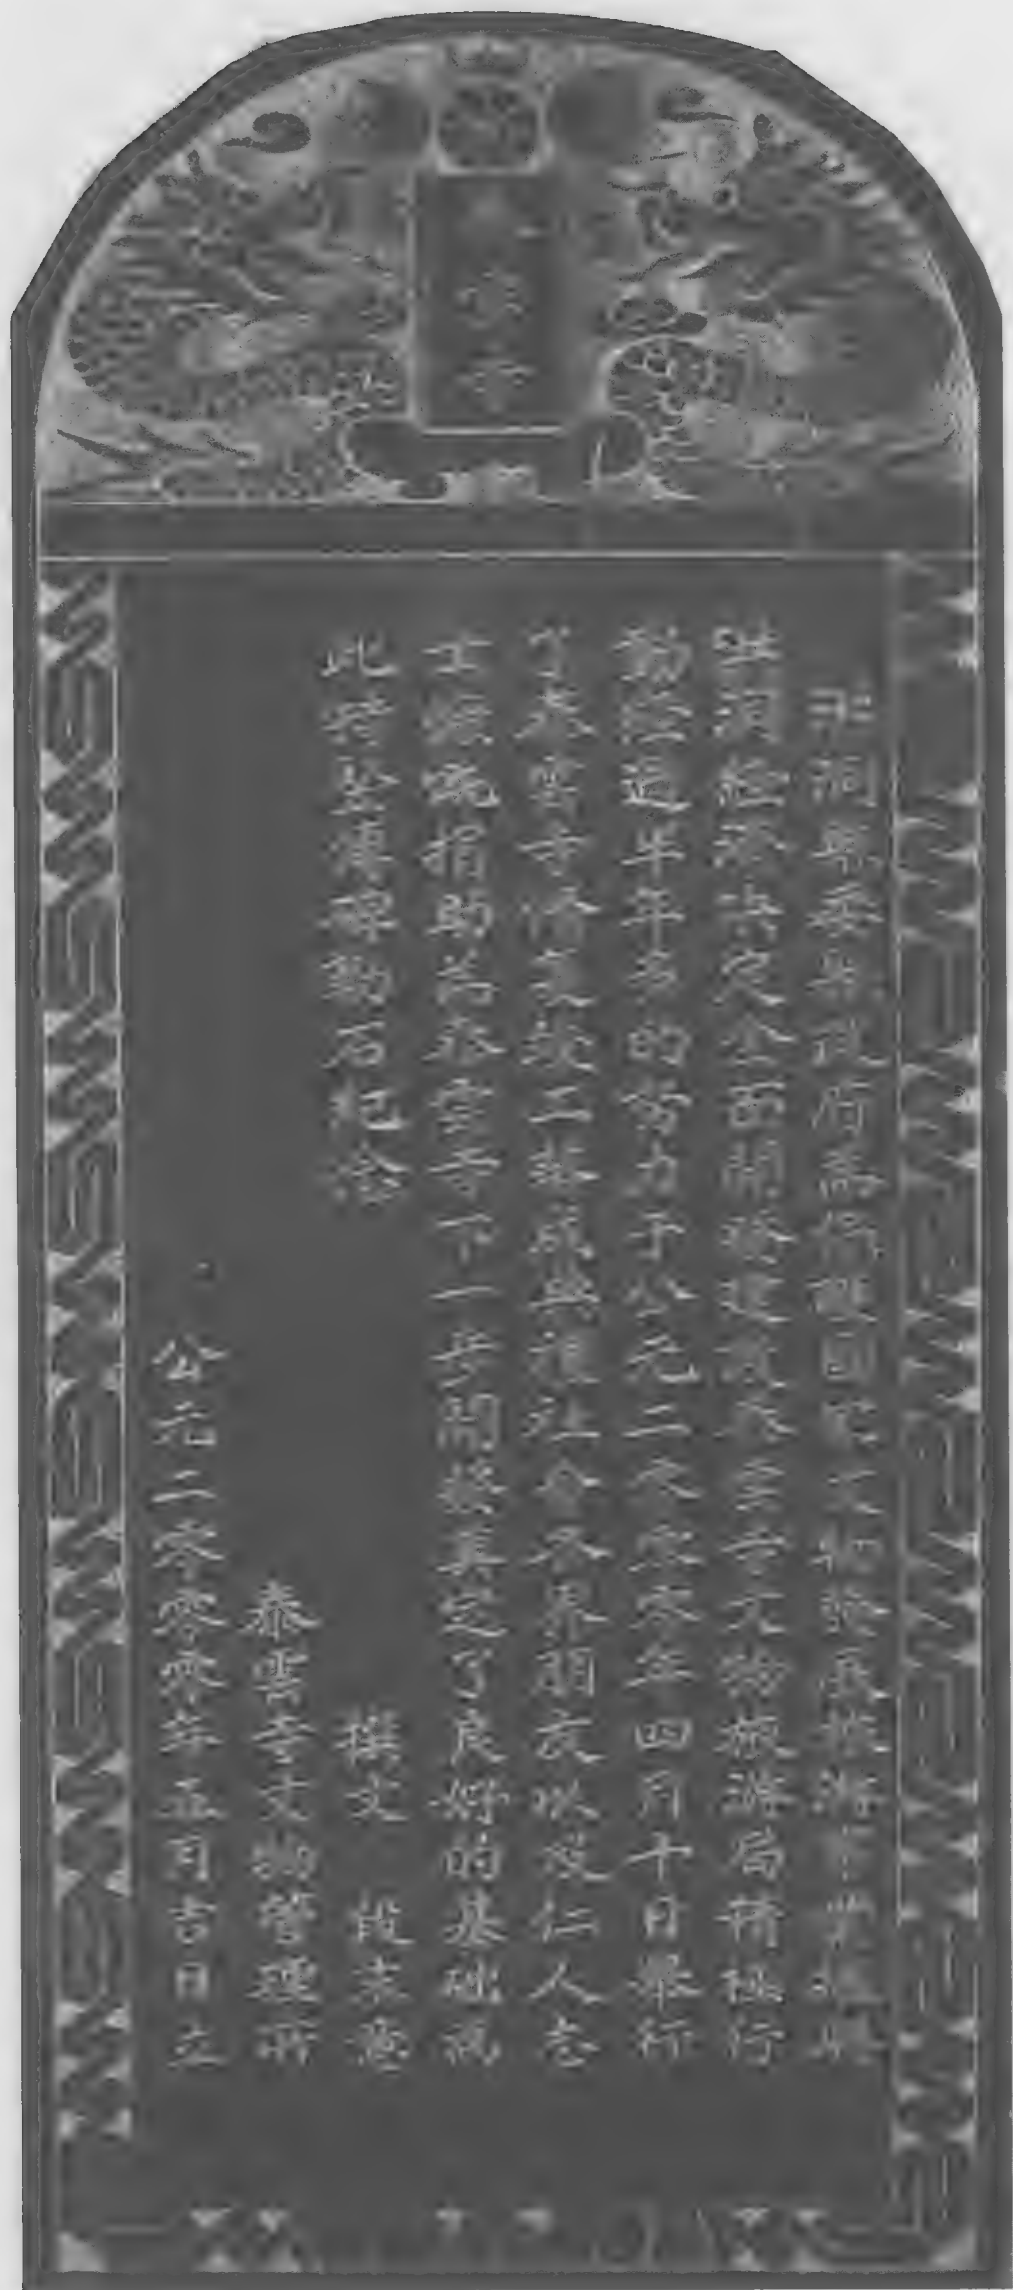 洞縣委縣政府為保護國家文物發展旅游事業振興
洪洞經濟決定全面開發建設泰雲寺文物旅游局積極行
動經過半年多的努力于公元二零零零年四月十日舉行
了泰雲寺修復竣工落成典禮社會各界朋友以及仁人志
士慷慨捐助為泰雲寺下一步開發奠定了良好的基础為
此特竖碑勒石紀念
撰文 段
泰雲寺文物管理所
公元二零零零年五月吉日立